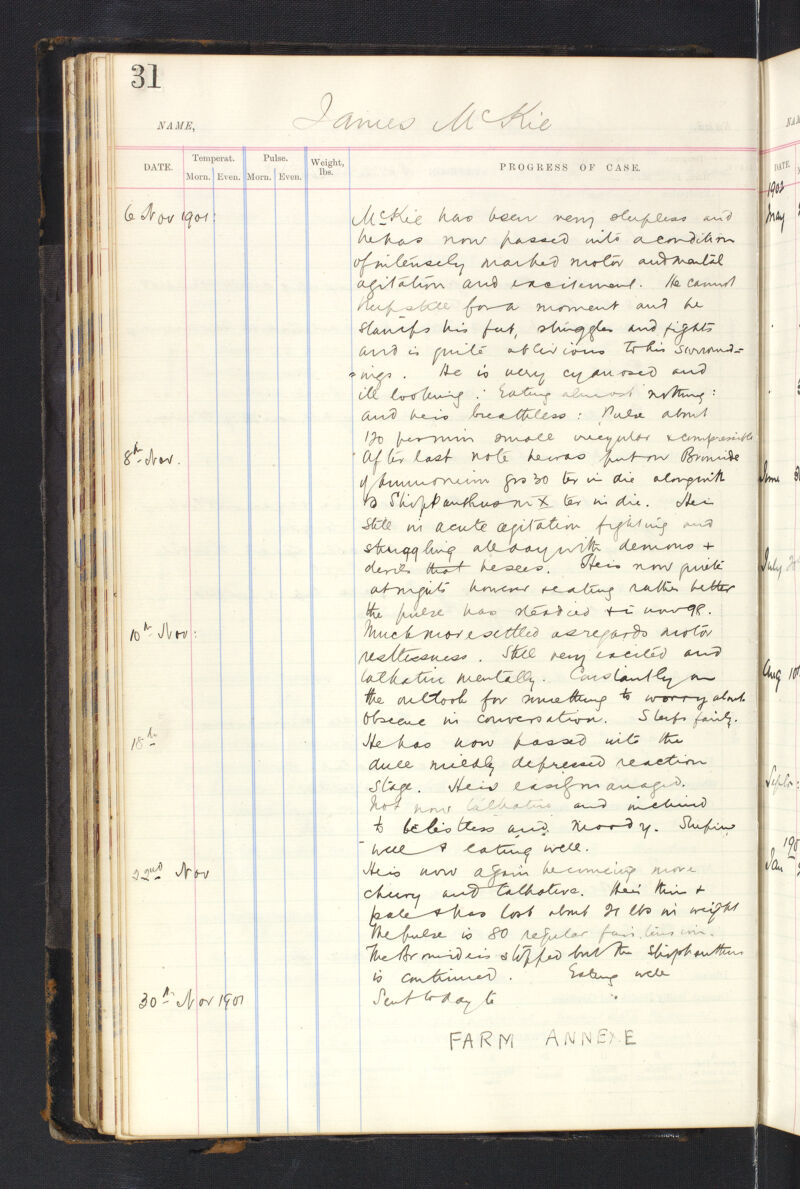 31
NAME, James McKie
DATE. Temperat. Pulse. Weight, lbs. PROGRESS OF CASE.
Morn. Even. Morn. Even.
6 Nov 1901: McKie has been very sleepless and
he has now passed into a condition
of intensely marked motor and mental
agitation and excitement. He cannot
keep still for a moment and he
stamps his feet, struggles and fights
and is quite oblivious to his surround=
=ings. He is very cyanosed and
ill looking: Eating almost nothing:
and he is breathless: Pulse about
120 per min small irregular & compressible
8th Nov. After last note he was put on Bromide
of Ammonium grs 30 ter in die along with
Strophanthus m X ter in die. He is
still in acute agitation fighting and
struggling all day with demons +
devils that he sees. He is now quiet
at nights however & eating rather better
the pulse has steadied & is now 98.
10th Nov: Much more settled as regards motor
restlessness. Still very excited and
talkative mentally. Constantly on
the outlook for something to worry about
Obscene in conversation. Sleeps fairly.
18th He has now passed into the
dull mildly depressed reaction
stage. He is easily managed.
Not now talkative and inclined
to be listless and moody. Sleeping
well & eating well.
22nd Nov He is now again becoming more
cheery and talkative. He is thin &
pale & has lost about 21 lbs in weight
The pulse is 80 regular fair tension.
The Bromide is stopped but the Strophanthus
is continued. Eating well
30th Nov 1901 Sent to day to
FARM ANNEXE
NA
DATE.
1902
May
June
July
Aug 10
Septr:
190
Jan